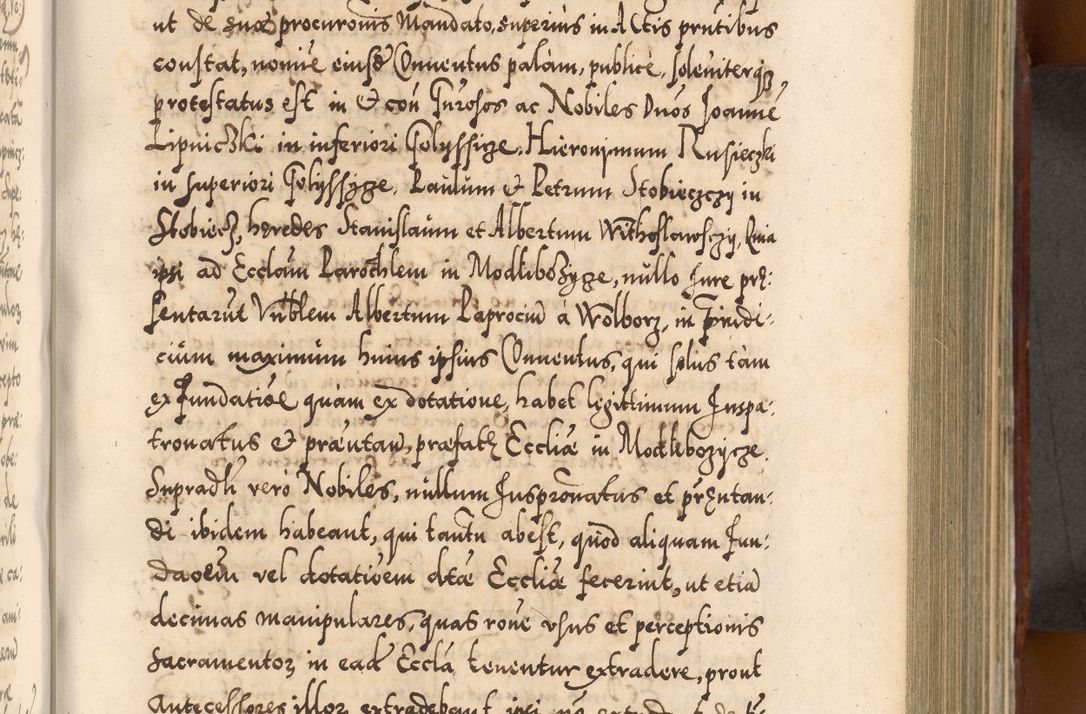 ut de suæ procuronis Mandato, superius in Actis prntibus
constat, nomie eiusd Conuentus palàm, publicè, soleniterq3
protestatus est in & con Gnrosos ac Nobiles Duos Joannē
Lipniczki in inferiori Golyssize, Hieronimum Rusieczki
in superiori Golyssyze, Paulum & Petrum Stobieczczy in
Stobiecz, hęredes Stanislaum et Albertum Withoslawsczy, Quia
ipsi ad Ecclam Parochlem in Modlibozyze, nullo Jure prę:
sentarūt Vnblem Albertum Paprociū à Wolborz, in Prudi:
cium maximum huius ipsius Conuentus, qui solus tàm
ex Fundatiōe quàm ex dotatione, habet ligittimum Juspa:
tronatus & præntan, præfatę Eccliæ in Modlibozycze.
Supradti vero Nobiles, nullum Juspronatus et pręntan:
di ibidem habeant, qui tantū abest, quòd aliquam Fun:
daōem vel dotatiōem dtæ Eccliæ fecerint, ut etiā
decimas manipulares, quas rōne vsus et perceptionis
Sacramentoꝝ in eadē Eccla tenentur extradere, prout
Antecessores illoꝝ extradebant, ipsi